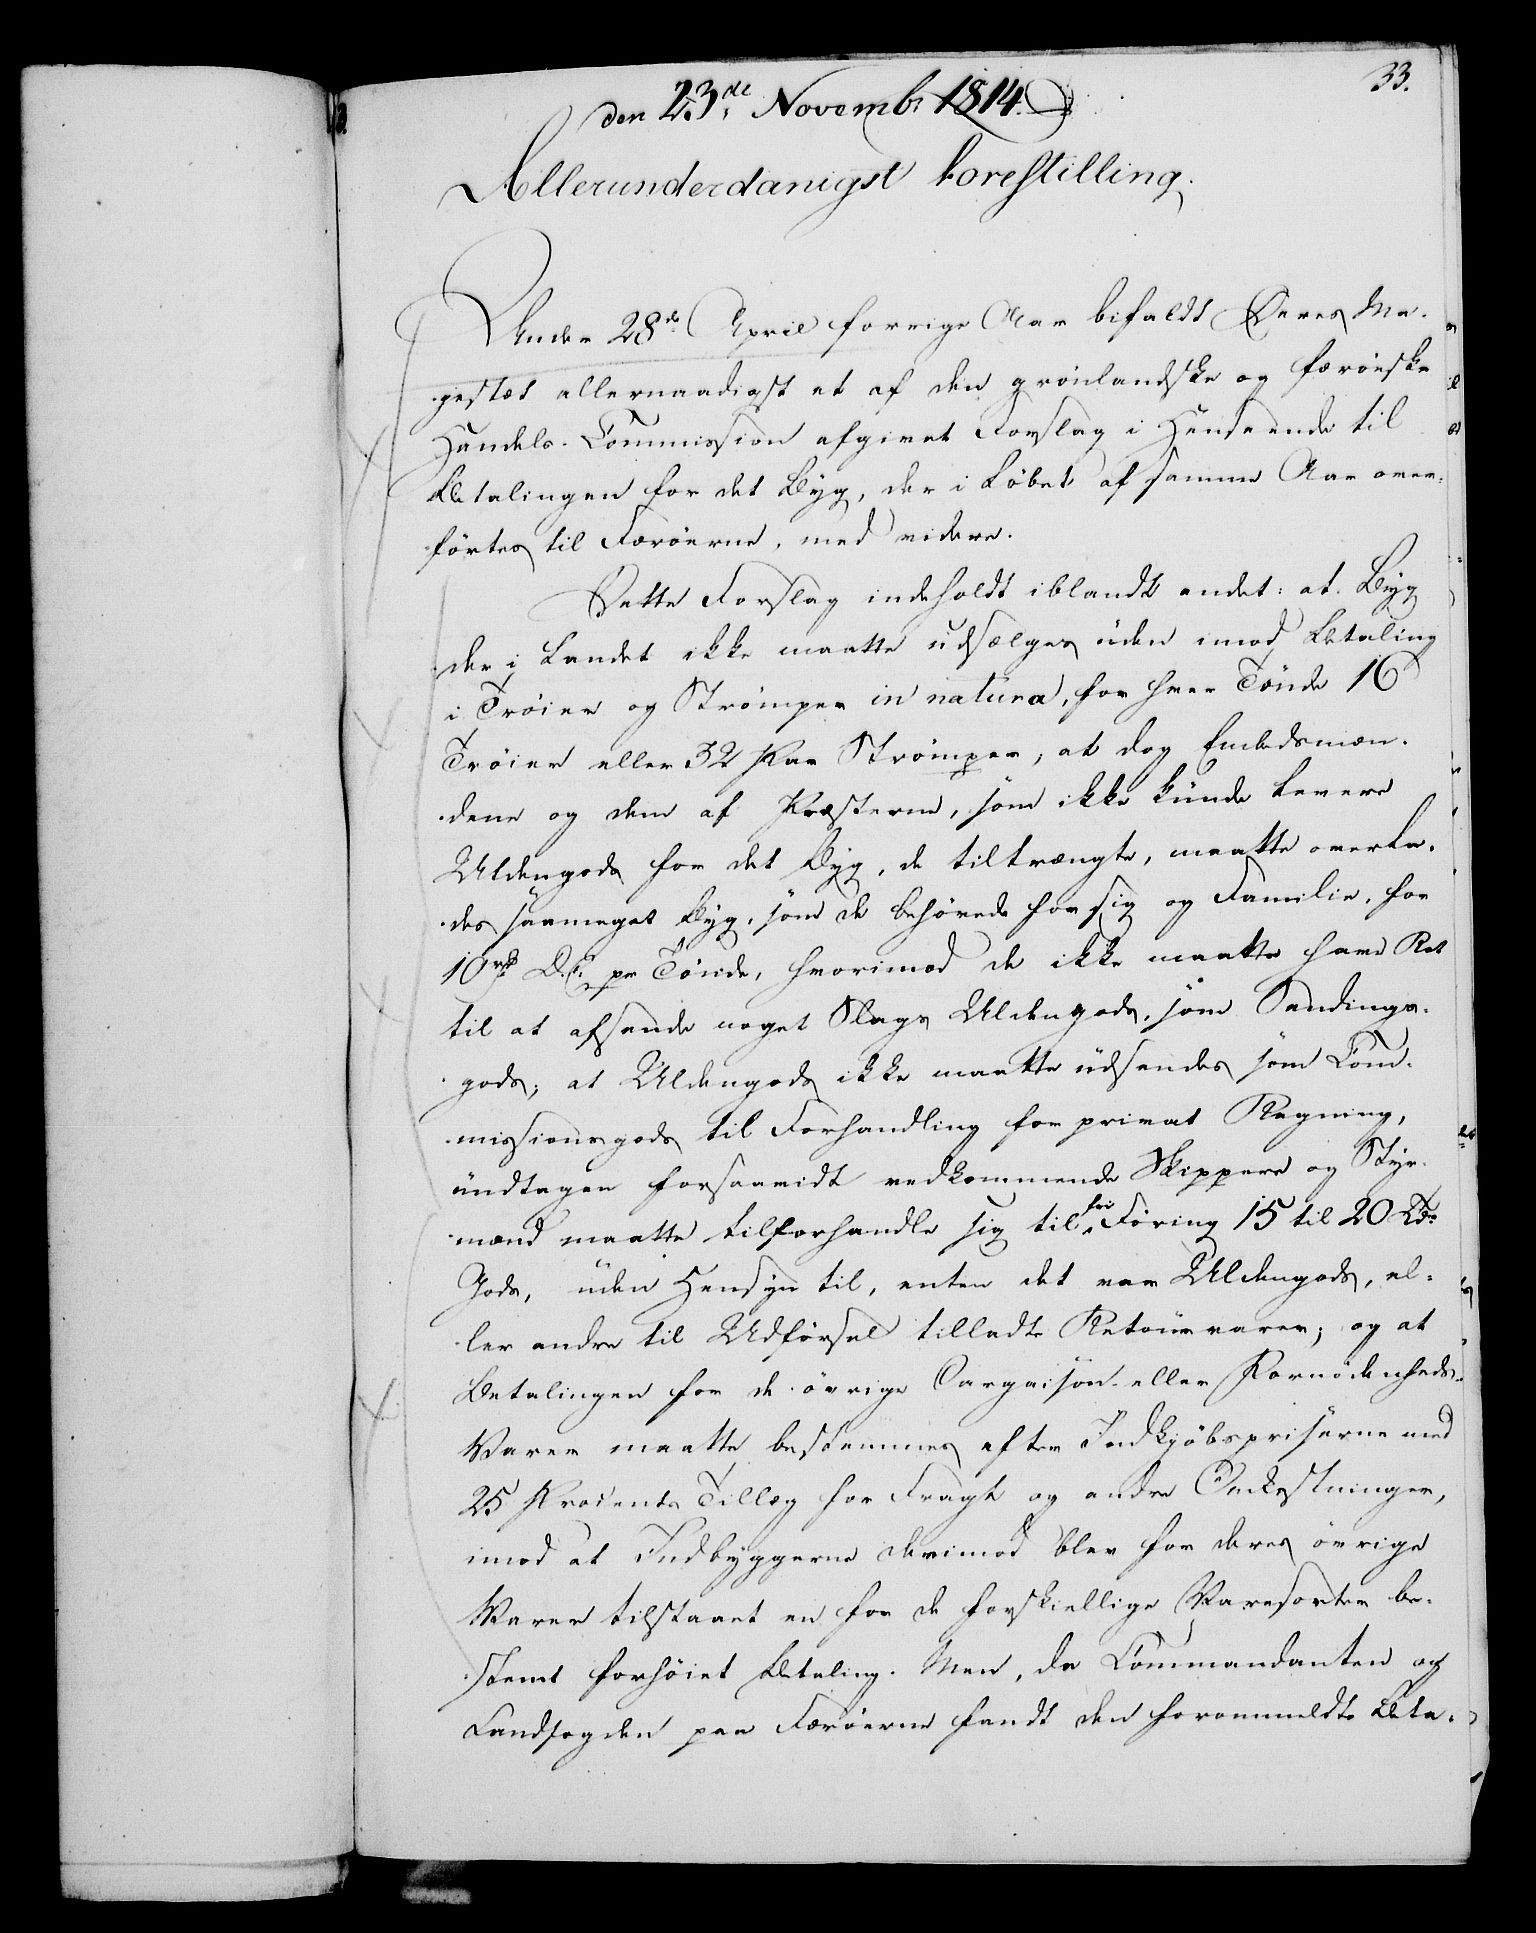 33.
den 23de Novembr 1814.
Allerunderdanigst Forestilling.
Under 28de April forrige Aar bifaldt Deres Ma-
jestæt allernaadigst et af den grönlandske og færöeske
Handels-Commission afgivet Forslag i Henseende til
Betalingen for det Byg, der i Löbet af samme Aar over-
förtes til Færöerne, med videre.
Dette Forslag indeholdt iblandt andet: at Byg
der i Landet ikke maatte udsælges uden imod Betaling
i Tröier og Strömper in natura, for hver Tönde 16
Tröier eller 32 Par Strömper; at dog Embedsmæn-
dene og dem af Præsterne, som ikke kunde levere
Uldengods for det Byg, de tiltrængte, maatte overla-
des saameget Byg, som de behövede for sig og Familie, for
10 rbd D.C. pr Tönde, hvorimod de ikke maatte have Ret
til at afsende noget Slags Uldengods, som Sendings-
gods; at Uldengods ikke maatte udsendes som Com-
missionsgods til Forhandling for privat Regning,
undtagen forsaavidt vedkommende Skippere og Styr-
mænd maatte tilforhandle sig til fri Föring 15 til 20 Tdr
Gods, uden Hensyn til, enten det var Uldengods, el-
ler andre til Udförsel tilladte Retourvarer; og at
Betalingen for de övrige Cargaison- eller Fornödenheds-
Varer maatte bestemmes efter Indkjöbspriserne med
25 Procents Tillæg for Fragt og andre Omkostninger,
imod at Indbyggerne derimod blev for deres övrige
Varer tilstaaet en for de forskiellige Varesorter be-
stemt forhöiet Betaling. Men, da Commandanten og
Landfogden paa Færöerne fandt den forommeldte Beta-